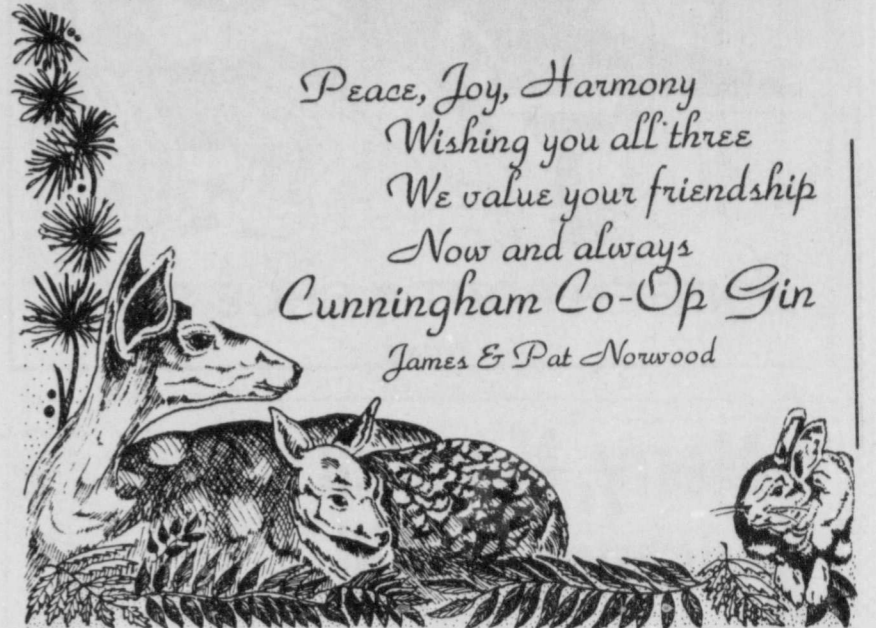 Peace, Joy, Harmony
Wishing you all three
We value your friendship
Now and always
Cunningham Co-Op Gin
James & Pat Norwood